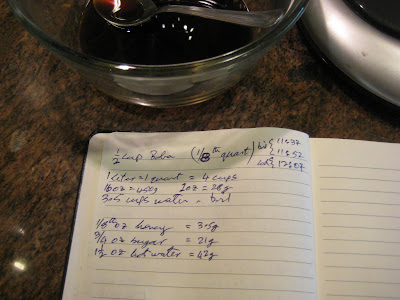 1/2 cup Boba (1/8th quart) boil { 11:37
{ 11:52
12:07
1 liter = 1 quart = 4 cups
16oz = 450g 1oz = 28g
3.5 cups water - boil
1/8th oz honey = 3.5g
3/4 oz sugar = 21g
1 1/2 oz hot water = 42g